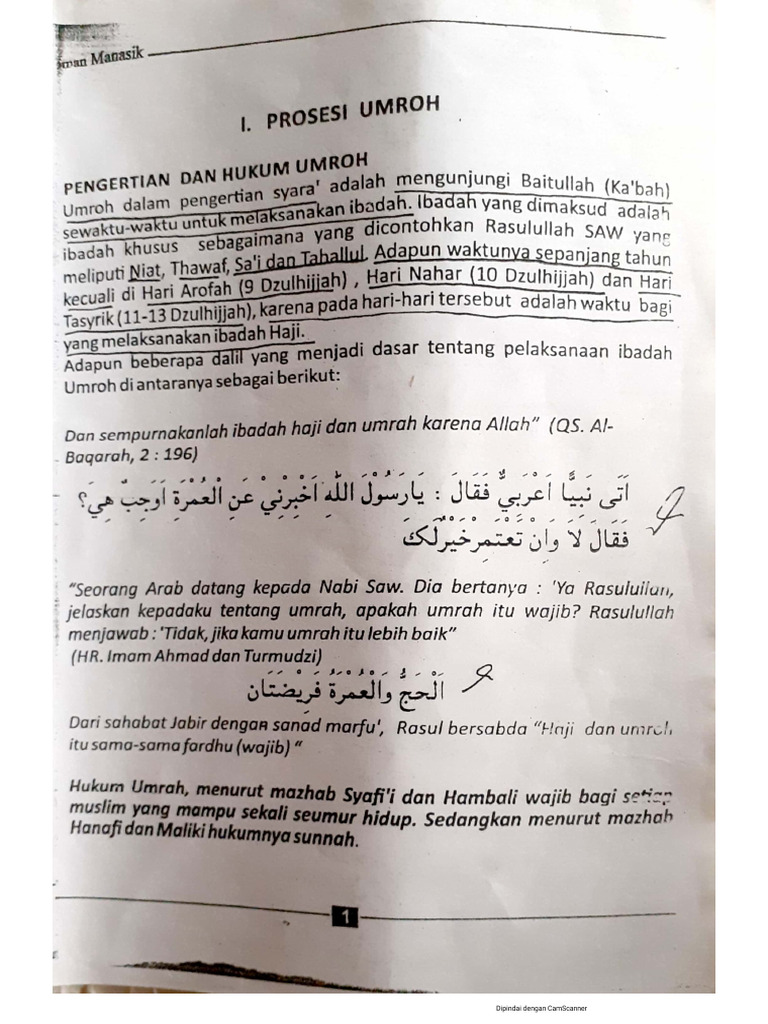 Manasik
I. PROSESI UMROH
PENGERTIAN DAN HUKUM UMROH
Umroh dalam pengertian syara' adalah mengunjungi Baitullah (Ka'bah)
sewaktu-waktu untuk melaksanakan ibadah. Ibadah yang dimaksud adalah
ibadah khusus sebagaimana yang dicontohkan Rasulullah SAW yang
meliputi Niat, Thawaf, Sa'i dan Tahallul. Adapun waktunya sepanjang tahun
kecuali di Hari Arofah (9 Dzulhijjah) , Hari Nahar (10 Dzulhijjah) dan Hari
Tasyrik (11-13 Dzulhijjah), karena pada hari-hari tersebut adalah waktu bagi
yang melaksanakan ibadah Haji.
Adapun beberapa dalil yang menjadi dasar tentang pelaksanaan ibadah
Umroh di antaranya sebagai berikut:
Dan sempurnakanlah ibadah haji dan umrah karena Allah” (QS. Al-
Baqarah, 2 : 196)
اَتَى نَبِيًّا اَعْرَبِيٌّ فَقَالَ : يَارَسُوْلَ اللهِ اَخْبِرْنِيْ عَنِ الْعُمْرَةِ اَوَجِبٌ هِيَ؟
فَقَالَ لاَ وَاِنْ تَعْتَمِرْخَيْرٌلَكَ
“Seorang Arab datang kepada Nabi Saw. Dia bertanya : 'Ya Rasulullah,
jelaskan kepadaku tentang umrah, apakah umrah itu wajib? Rasulullah
menjawab : 'Tidak, jika kamu umrah itu lebih baik”
(HR. Imam Ahmad dan Turmudzi)
اَلْحَجُّ وَالْعُمْرَةُ فَرِيْضَتَان
Dari sahabat Jabir dengan sanad marfu', Rasul bersabda “Haji dan umroh
itu sama-sama fardhu (wajib) “
Hukum Umrah, menurut mazhab Syafi'i dan Hambali wajib bagi setiap
muslim yang mampu sekali seumur hidup. Sedangkan menurut mazhab
Hanafi dan Maliki hukumnya sunnah.
1
Dipindai dengan CamScanner